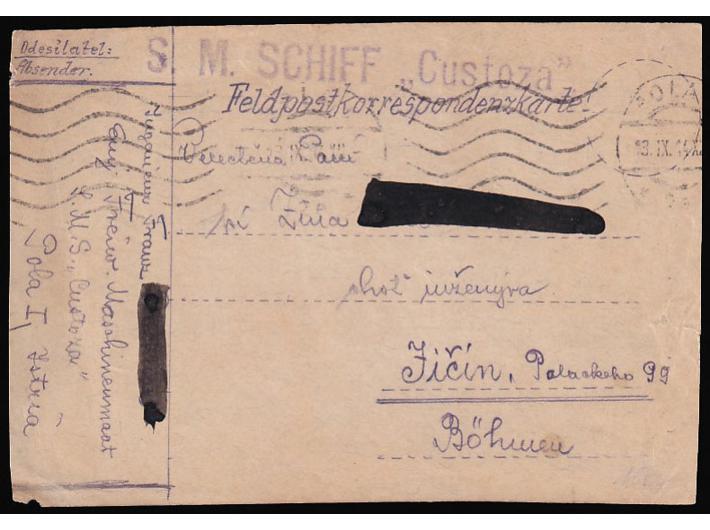 Odesílatel:
Absender.
S. M. SCHIFF „Custoza"
Feldpostkorrespondenzkarte!
POLA
13.IX.14
Velectěná Paní
pí Zína
choť inženýra
Jičín, Palackeho 99
Böhmen
Ingenieur Franz
Einj. Freiw. Maschinenmaat
S.M.S. „Custoza"
Pola I, Istria